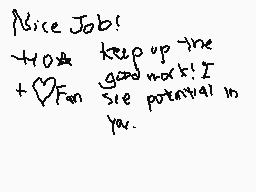 Nice Job!
+10★ keep up the
good work! I
+♡Fan see potential in
you.